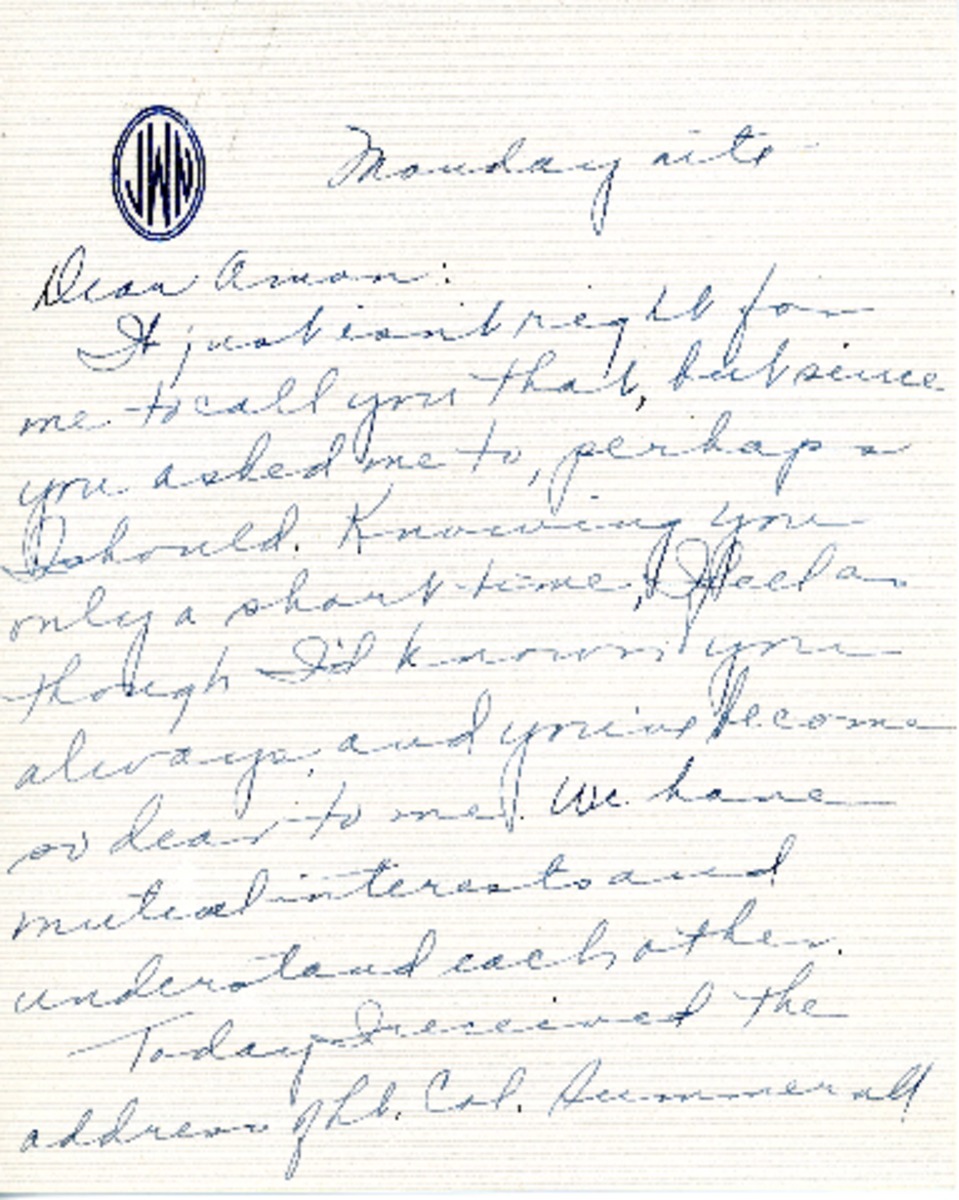 JWN
Monday nite
Dear Amon:
It just isn't right for
me to call you that, but since
you asked me to, perhaps
I should. Knowing you
only a short time, I feel as
though I'd known you
always, and you've become
so dear to me. We have
mutual interests and
understand each other.
Today I received the
address of Lt. Col. Summerall